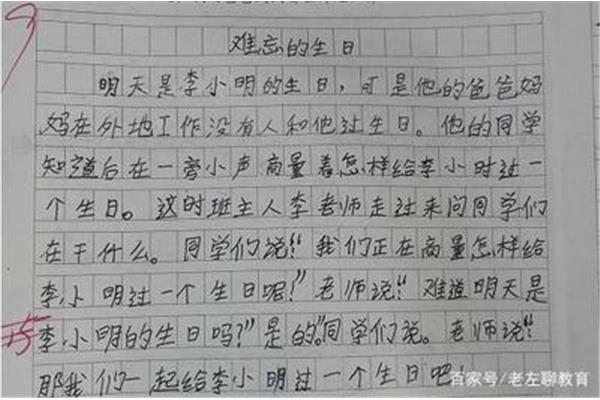 难忘的生日
明天是李小明的生日,可是他的爸爸妈
妈在外地工作没有人和他过生日。他的同学
知道后在一旁小声商量着怎样给李小时过一
个生日。这时班主人李老师走过来问同学们
在干什么。同学们说:“我们正在商量怎样给
李小明过一个生日呢?”老师说:“难道明天是
李小明的生日吗?”是的”同学们说。老师说:“
那我们一起给李小明过一个生日吧
百家号/老左聊教育